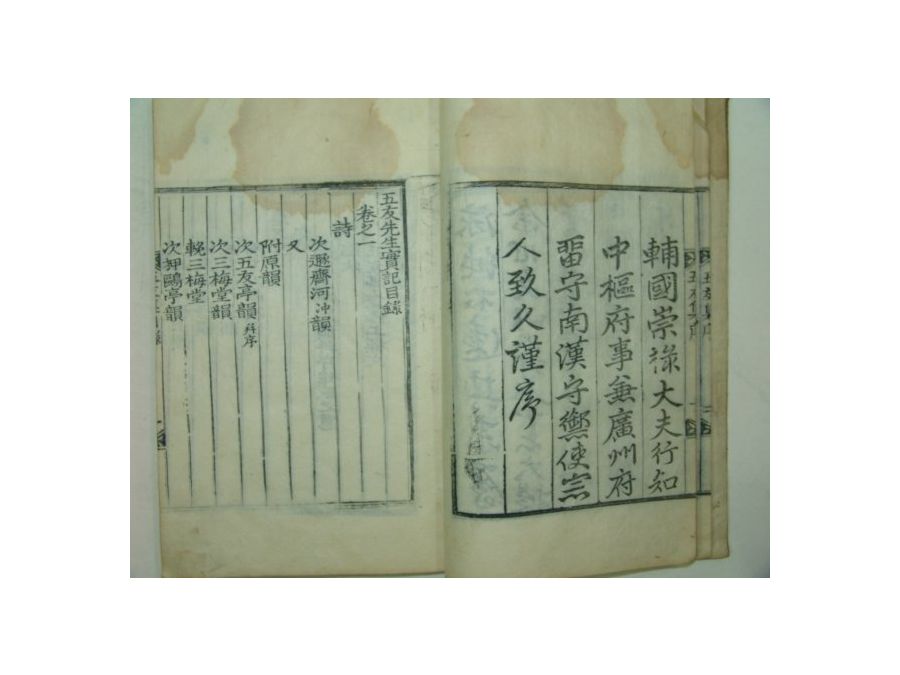 輔國崇祿大夫行知
中樞府事兼廣州府
畱守南漢守禦使宗
人致久謹序
五友先生實記目錄
卷之一
詩
次遯齋河冲韻
又
附原韻
次五友亭韻 幷序
次三梅堂韻
輓三梅堂
次狎鷗亭韻